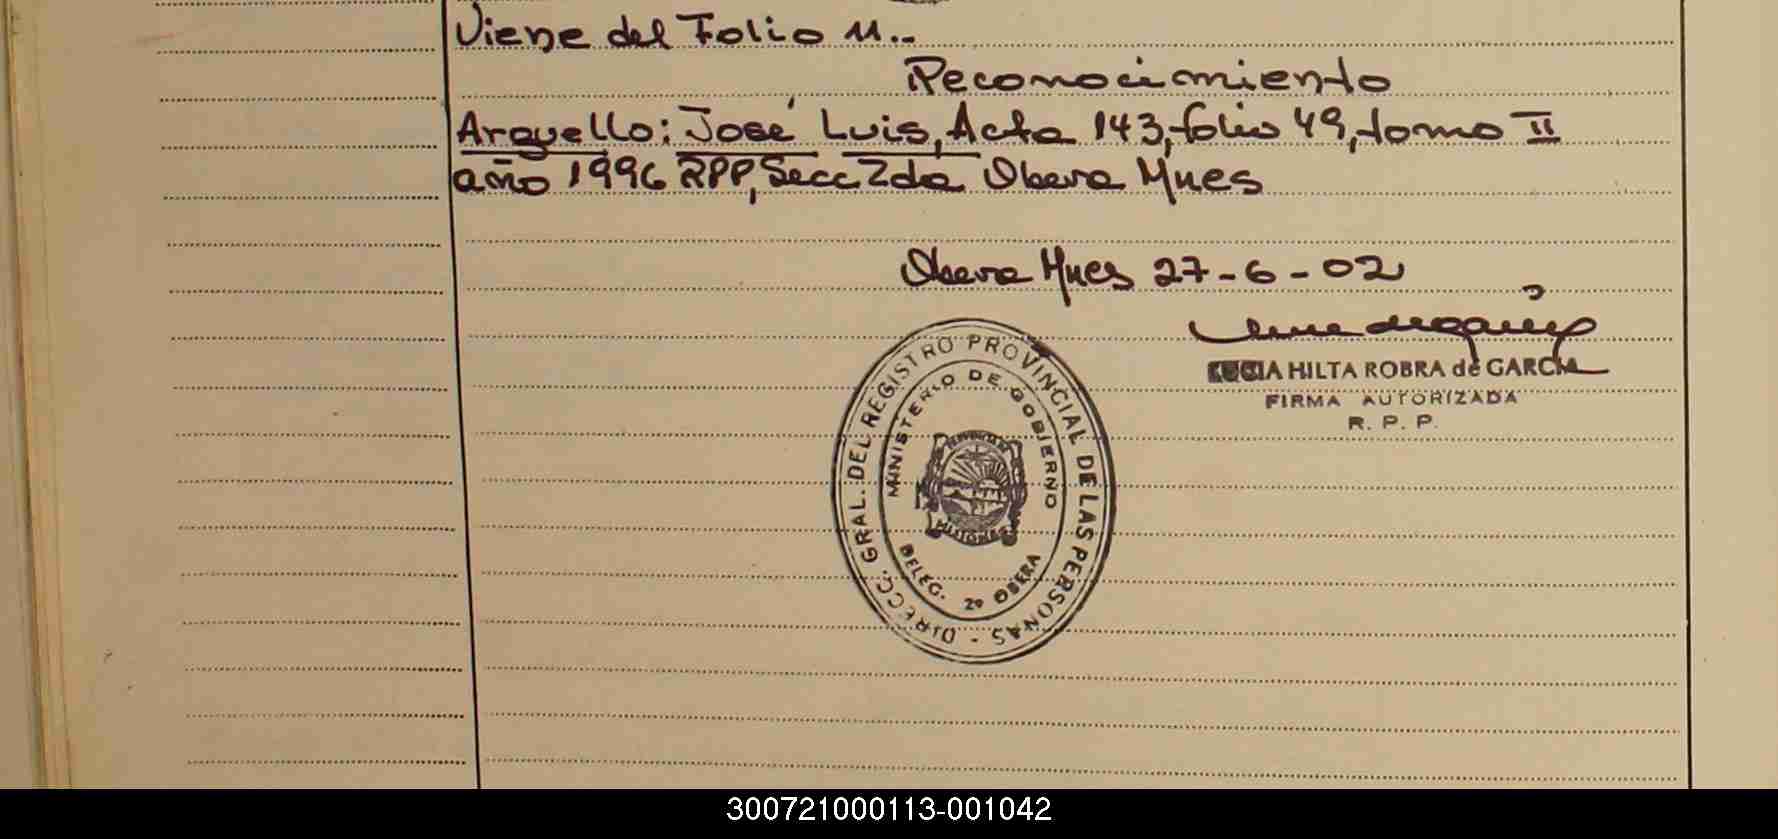 Viene del Folio 11..
Reconocimiento
Arguello: José Luis, Acta 143, folio 49, tomo II
año 1996 RPP, Secc 2da Obera Mnes
Obera Mnes 27-6-02
LUCIA HILTA ROBRA de GARCIA
FIRMA AUTORIZADA
R. P. P.
DIRECC. GRAL. DEL REGISTRO PROVINCIAL DE LAS PERSONAS -
MINISTERIO DE GOBIERNO
MISIONES
DELEG. 2º OBERA
300721000113-001042